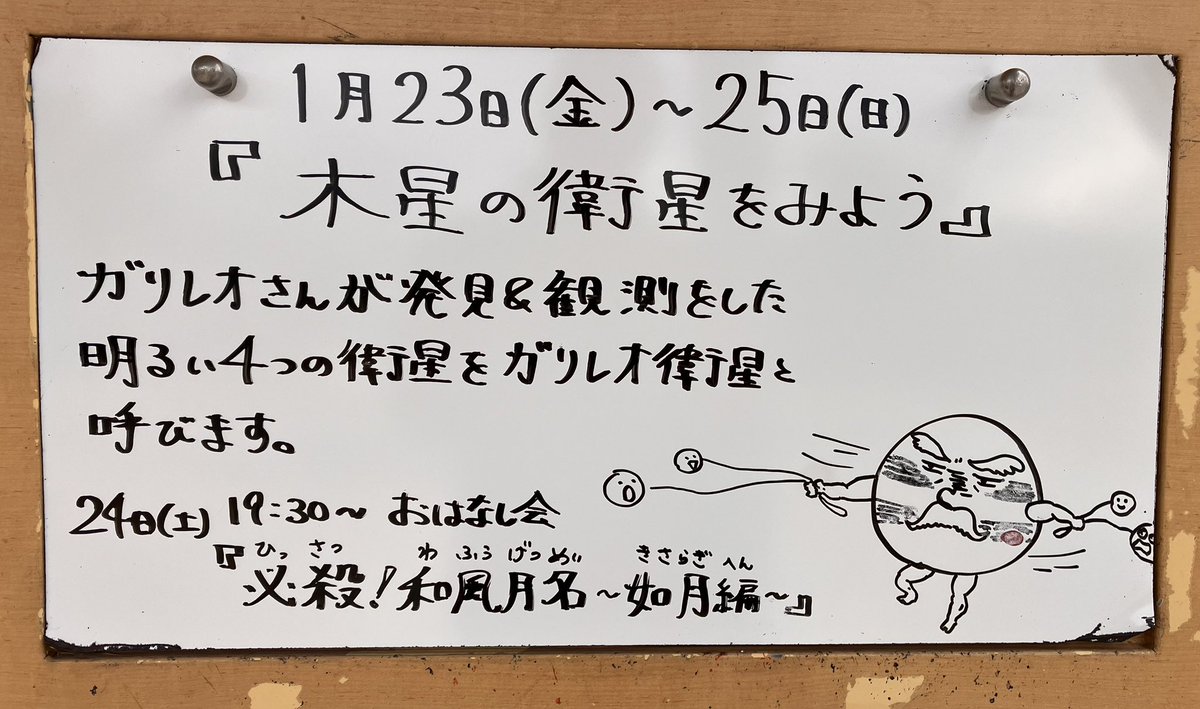 1月23日(金)～25日(日)
『木星の衛星をみよう』
ガリレオさんが発見&観測をした
明るい4つの衛星をガリレオ衛星と
呼びます。
24日(土) 19:30～ おはなし会
ひっ さつ わ ふう げつ めい きさらぎ へん
『必殺!和風月名～如月編～』